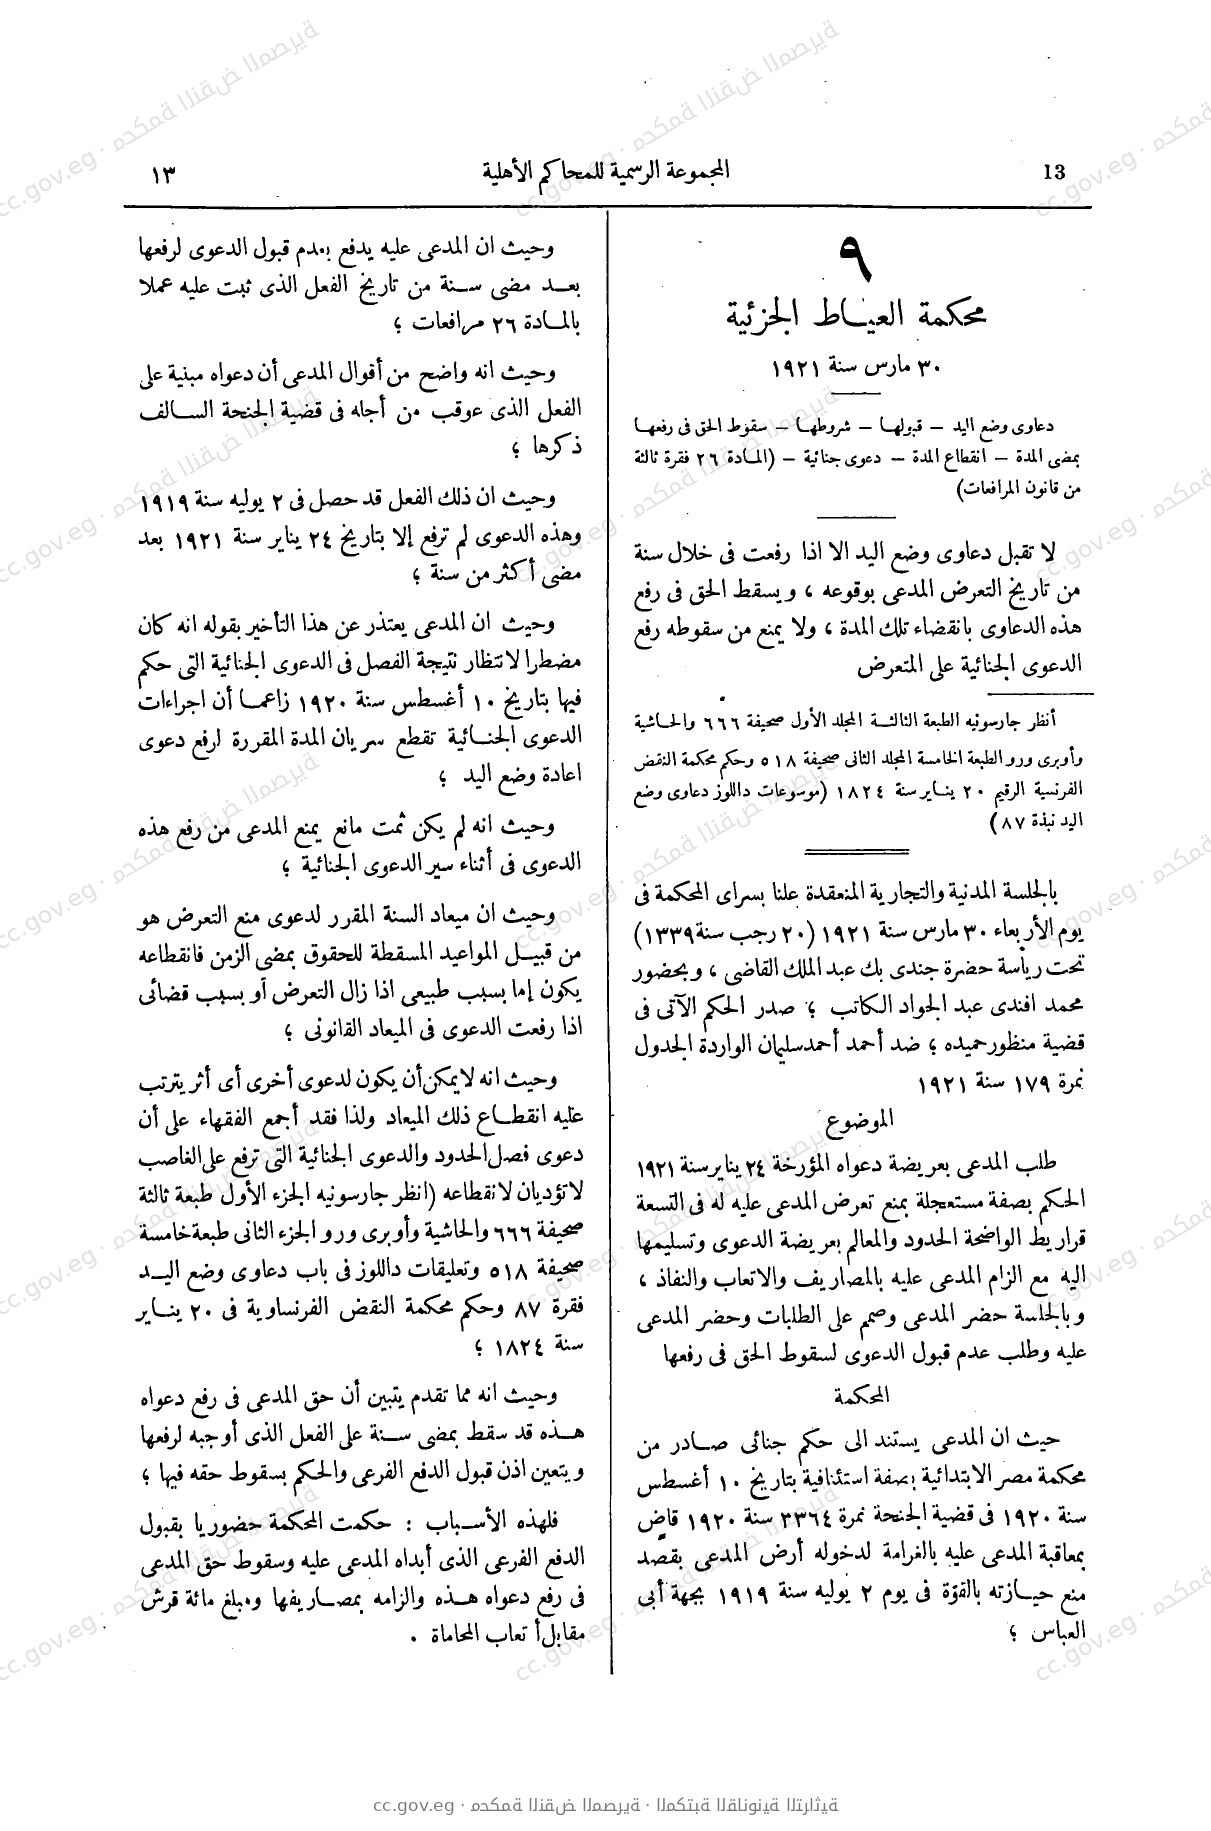 13
المجموعة الرسمية للمحاكم الأهلية
١٣
٩
محكمة العياط الجزئية
٣٠ مارس سنة ١٩٢١
دعاوى وضع اليد – قبولها – شروطها – سقوط الحق فى رفعها
بمضى المدة – انقطاع المدة – دعوى جنائية – (المادة ٢٦ فقرة ثالثة
من قانون المرافعات)
لا تقبل دعاوى وضع اليد الا اذا رفعت فى خلال سنة
من تاريخ التعرض المدعى بوقوعه ، ويسقط الحق فى رفع
هذه الدعاوى بانقضاء تلك المدة ، ولا يمنع من سقوطه رفع
الدعوى الجنائية على المتعرض
أنظر جارسونيه الطبعة الثالثة المجلد الأول صحيفة ٦٦٦ والحاشية
وأوبرى ورو الطبعة الخامسة المجلد الثانى صحيفة ٥١٨ وحكم محكمة النقض
الفرنسية الرقيم ٢٠ يناير سنة ١٨٢٤ (موسوعات داللوز دعاوى وضع
اليد نبذة ٨٧)
بالجلسة المدنية والتجارية المنعقدة علنا بسراى المحكمة فى
يوم الأربعاء ٣٠ مارس سنة ١٩٢١ (٢٠ رجب سنة ١٣٣٩)
تحت رياسة حضرة جندى بك عبد الملك القاضى ، وبحضور
محمد افندى عبد الجواد الكاتب ؛ صدر الحكم الآتى فى
قضية منظور حميده ؛ ضد أحمد أحمد سليمان الواردة الجدول
نمرة ١٧٩ سنة ١٩٢١
الموضوع
طلب المدعى بعريضة دعواه المؤرخة ٢٤ يناير سنة ١٩٢١
الحكم بصفة مستعجلة بمنع تعرض المدعى عليه له فى التسعة
قراريط الواضحة الحدود والمعالم بعريضة الدعوى وتسليمها
اليه مع الزام المدعى عليه بالمصاريف والاتعاب والنفاذ ،
وبالجلسة حضر المدعى وصمم على الطلبات وحضر المدعى
عليه وطلب عدم قبول الدعوى لسقوط الحق فى رفعها
المحكمة
حيث ان المدعى يستند الى حكم جنائى صادر من
محكمة مصر الابتدائية بصفة استئنافية بتاريخ ١٠ أغسطس
سنة ١٩٢٠ فى قضية الجنحة نمرة ٣٣٦٤ سنة ١٩٢٠ قاض
بمعاقبة المدعى عليه بالغرامة لدخوله أرض المدعى بقصد
منع حيازته بالقوة فى يوم ٢ يوليه سنة ١٩١٩ بجهة أبى
العباس ؛
وحيث ان المدعى عليه يدفع بعدم قبول الدعوى لرفعها
بعد مضى سنة من تاريخ الفعل الذى ثبت عليه عملا
بالمادة ٢٦ مرافعات ؛
وحيث انه واضح من أقوال المدعى أن دعواه مبنية على
الفعل الذى عوقب من أجله فى قضية الجنحة السالف
ذكرها ؛
وحيث ان ذلك الفعل قد حصل فى ٢ يوليه سنة ١٩١٩
وهذه الدعوى لم ترفع إلا بتاريخ ٢٤ يناير سنة ١٩٢١ بعد
مضى أكثر من سنة ؛
وحيث ان المدعى يعتذر عن هذا التأخير بقوله انه كان
مضطرا لانتظار نتيجة الفصل فى الدعوى الجنائية التى حكم
فيها بتاريخ ١٠ أغسطس سنة ١٩٢٠ زاعما أن اجراءات
الدعوى الجنائية تقطع سريان المدة المقررة لرفع دعوى
اعادة وضع اليد ؛
وحيث انه لم يكن ثمت مانع يمنع المدعى من رفع هذه
الدعوى فى أثناء سير الدعوى الجنائية ؛
وحيث ان ميعاد السنة المقرر لدعوى منع التعرض هو
من قبيل المواعيد المسقطة للحقوق بمضى الزمن فانقطاعه
يكون إما بسبب طبيعى اذا زال التعرض أو بسبب قضائى
اذا رفعت الدعوى فى الميعاد القانونى ؛
وحيث انه لا يمكن أن يكون لدعوى أخرى أى أثر يترتب
عليه انقطاع ذلك الميعاد ولذا فقد أجمع الفقهاء على أن
دعوى فصل الحدود والدعوى الجنائية التى ترفع على الغاصب
لا تؤديان لانقطاعه (انظر جارسونيه الجزء الأول طبعة ثالثة
صحيفة ٦٦٦ والحاشية وأوبرى ورو الجزء الثانى طبعة خامسة
صحيفة ٥١٨ وتعليقات داللوز فى باب دعاوى وضع اليد
فقرة ٨٧ وحكم محكمة النقض الفرنساوية فى ٢٠ يناير
سنة ١٨٢٤ ؛
وحيث انه مما تقدم يتبين أن حق المدعى فى رفع دعواه
هذه قد سقط بمضى سنة على الفعل الذى أوجبه لرفعها
ويتعين اذن قبول الدفع الفرعى والحكم بسقوط حقه فيها ؛
فلهذه الأسباب : حكمت المحكمة حضوريا بقبول
الدفع الفرعى الذى أبداه المدعى عليه وسقوط حق المدعى
فى رفع دعواه هذه والزامه بمصاريفها ومبلغ مائة قرش
مقابل أتعاب المحاماة .
cc.gov.eg · محكمة النقض المصرية · المكتبة القانونية التراثية